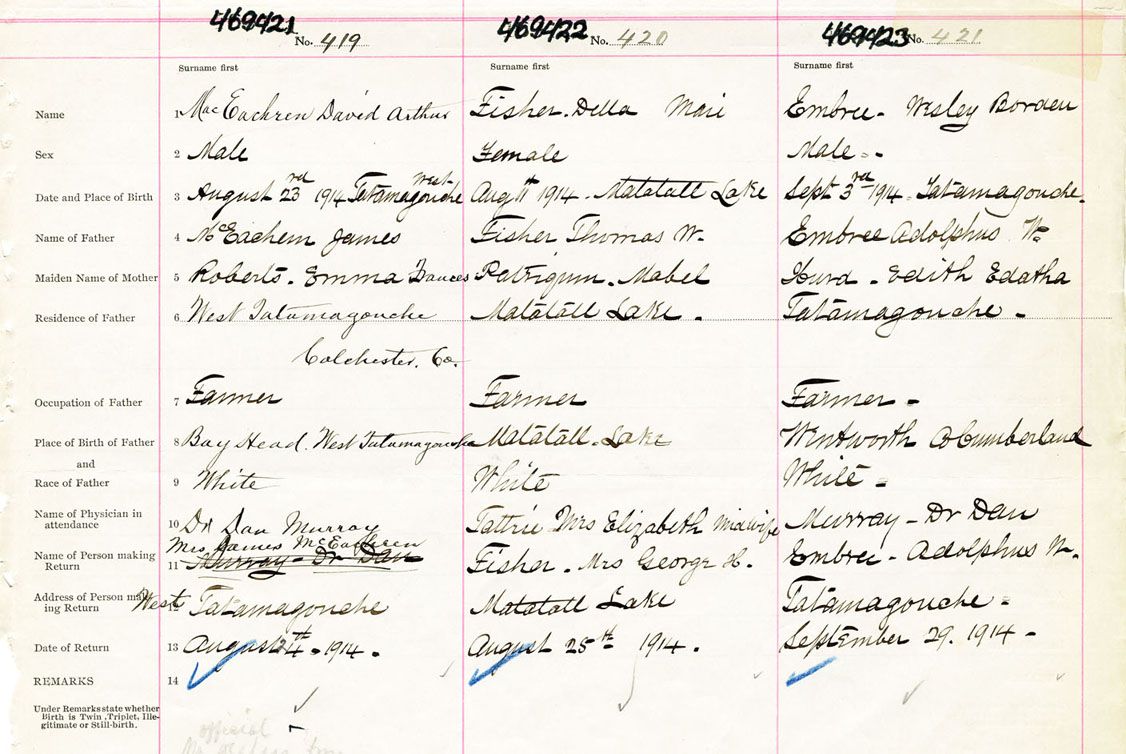 469421 No. 419 469422 No. 420 469423 No. 421
Surname first Surname first Surname first
Name 1 MacEachren David Arthur Fisher. Della Mari Embree - Wesley Borden
Sex 2 Male Female Male - -
Date and Place of Birth 3 August 23rd 1914 West Tatamagouche Aug 11th 1914. Matatall Lake Sept 3rd 1914. Tatamagouche.
Name of Father 4 McEachern James Fisher Thomas W. Embree Adolphus W.
Maiden Name of Mother 5 Roberts. Emma Frances Patriquin. Mabel Hurd - Edith Edatha
Residence of Father 6 West Tatamagouche Matatall Lake. Tatamagouche -
Colchester. Co.
Occupation of Father 7 Farmer Farmer Farmer -
Place of Birth of Father 8 Bay Head. West Tatamagouche Matatall. Lake Wentworth Co Cumberland
and
Race of Father 9 White White White -
Name of Physician in
attendance 10 Dr Dan Murray Tattrie Mrs Elizabeth midwife Murray - Dr Dan
Mrs James McEachren
Name of Person making
Return 11 Murray - Dr Dan Fisher. Mrs George H. Embree - Adolphus W.
Address of Person mak-
ing Return 12 West Tatamagouche Matatall Lake Tatamagouche -
Date of Return 13 August 24th - 1914. August 25th 1914. September 29. 1914 -
REMARKS 14
Under Remarks state whether
Birth is Twin, Triplet, Ille-
gitimate or Still-birth.
official